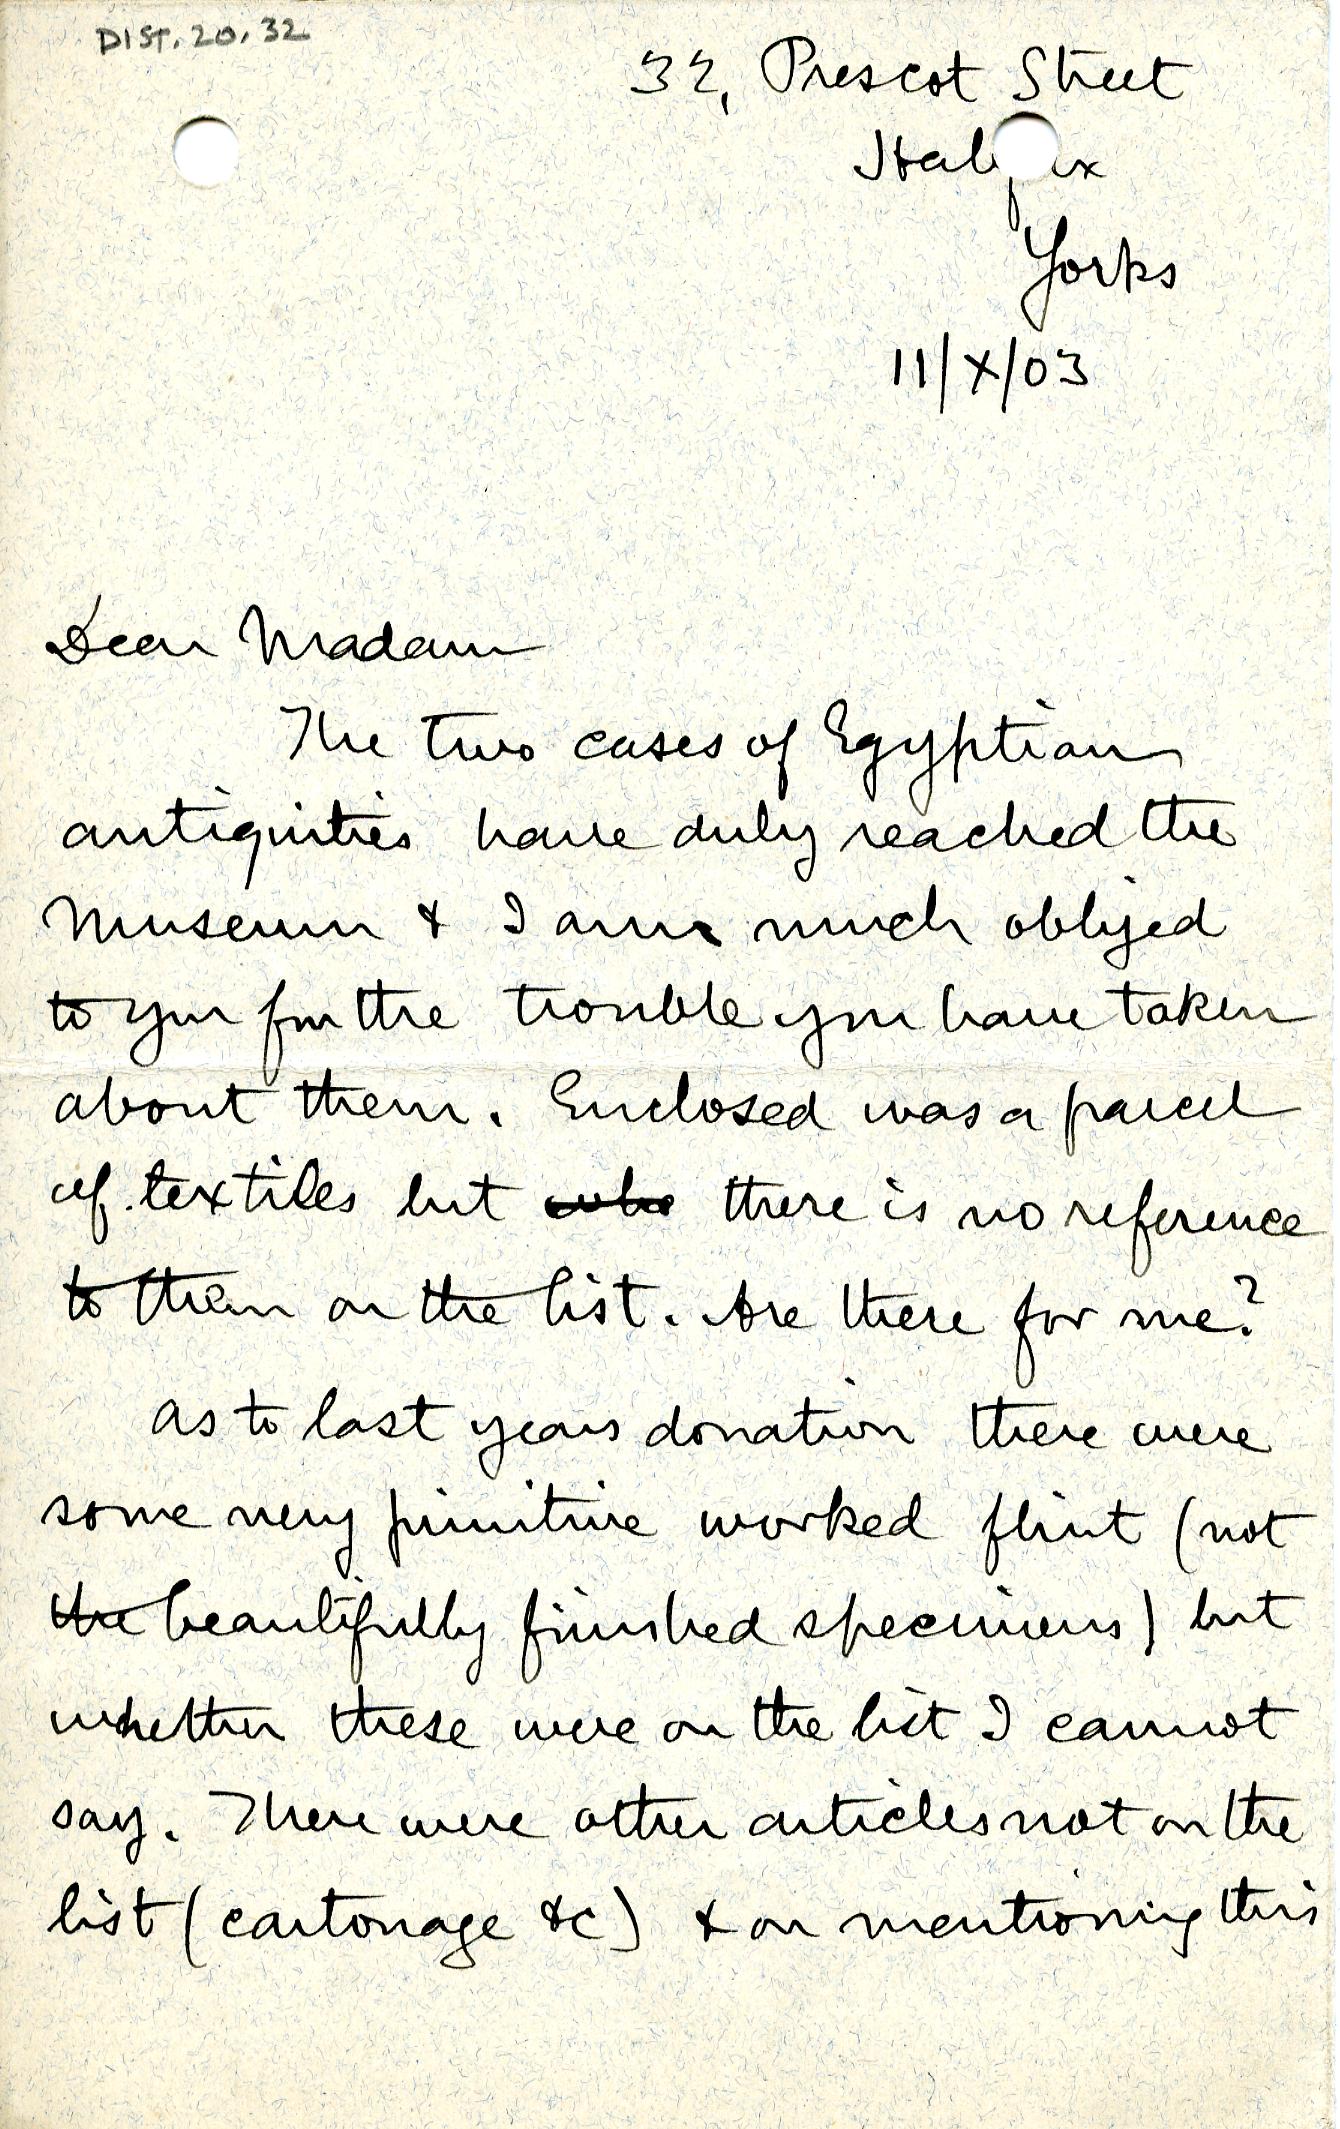 DIST. 20. 32
32, Prescot Street
Halifax
Yorks
11/X/03
Dear Madam
The two cases of Egyptian
antiquities have duly reached the
Museum & I am much obliged
to you for the trouble you have taken
about them. Enclosed was a parcel
of textiles but there is no reference
to them on the list. Are there for me?
As to last years donation there were
some very primitive worked flint (not
the beautifully finished specimens) but
whether these were on the list I cannot
say. There were other articles not on the
list (cartonage &c) & on mentioning this